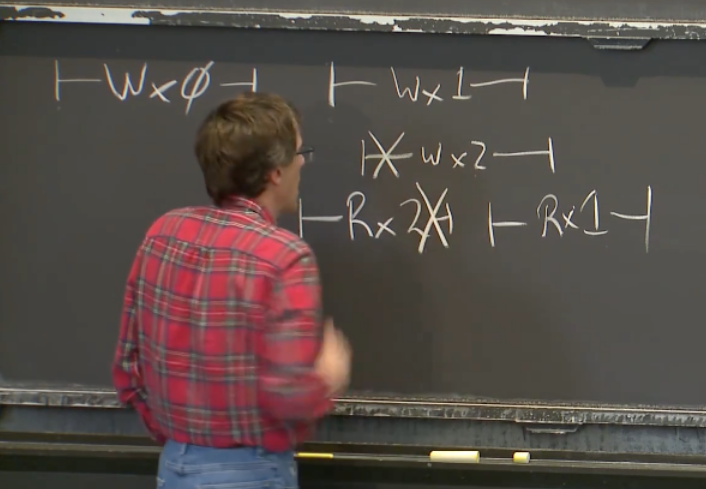 |–Wx0–| |–Wx1–|
|–Wx2–|
|–Rx2–| |–Rx1–|